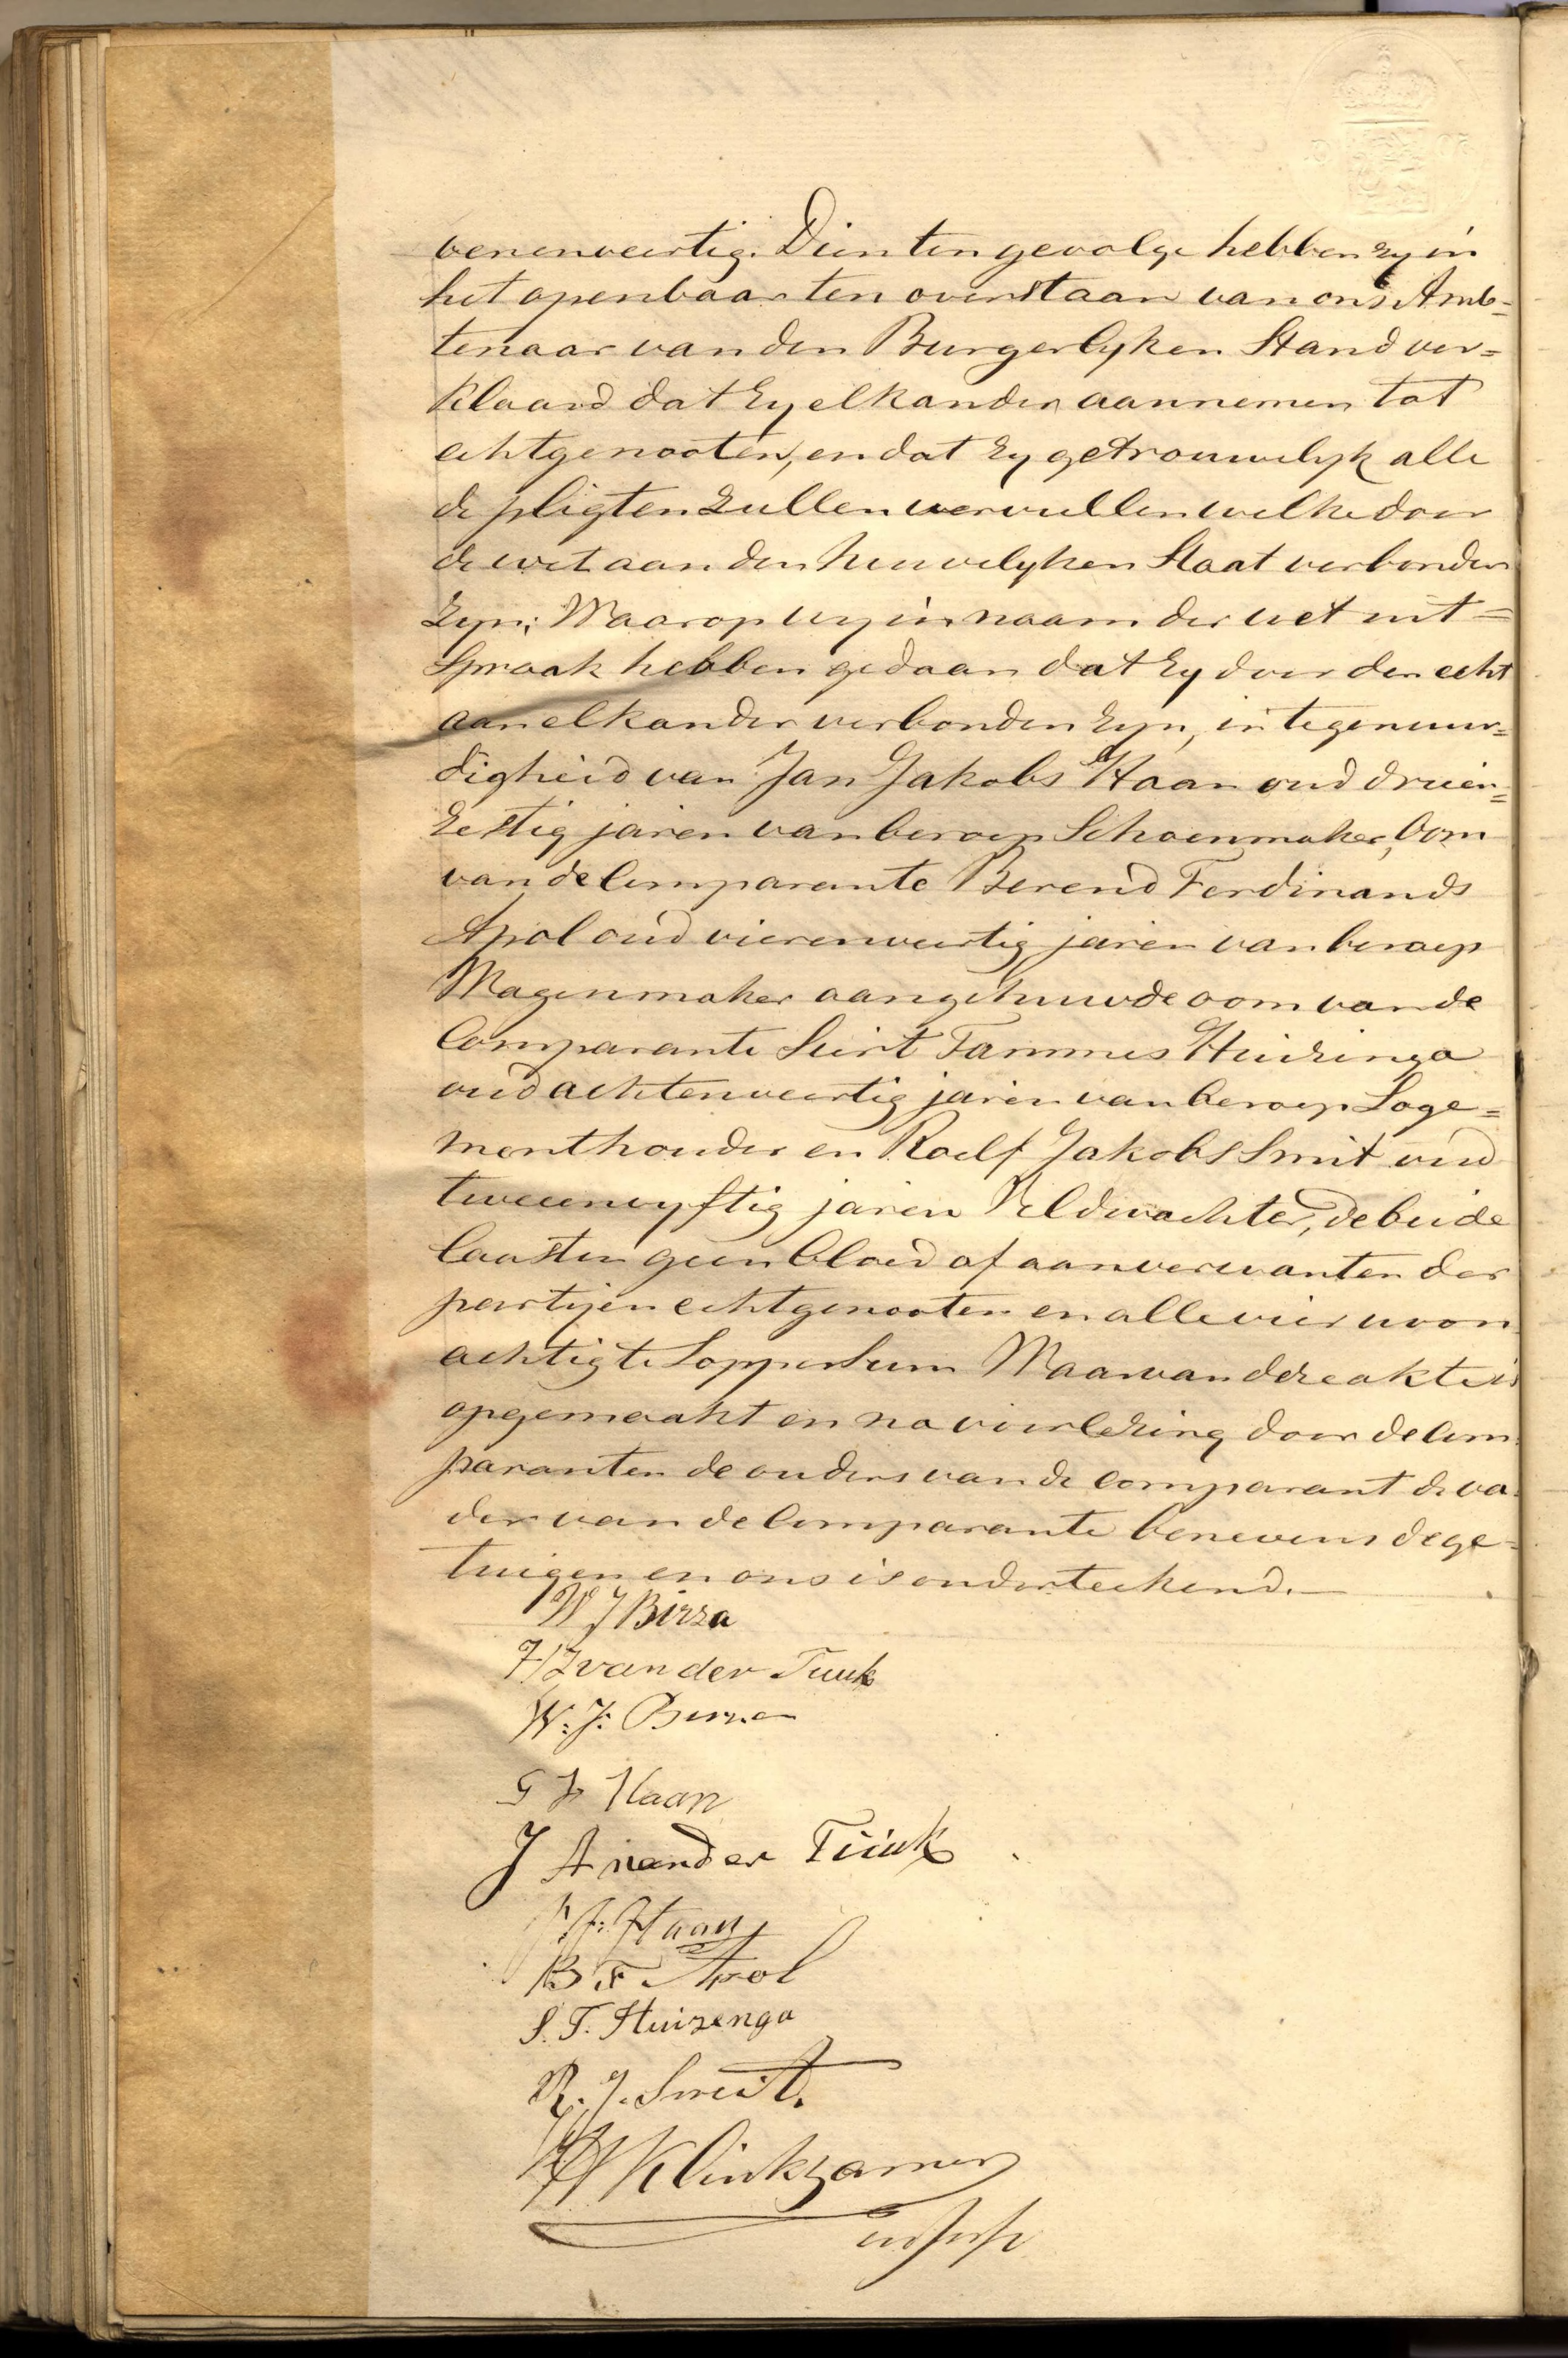 venenveertig. Dien ten gevolge hebben zy in
het openbaar ten overstaan van ons Amb=
tenaar van den Burgerlyken Stand ver=
klaard dat zy elkander aannemen tot
echtgenooten, en dat zy getrouwelyk alle
de pligten zullen vervullen welke door
de wet aan den huwelyken Staat verbonden
zyn; Waarop wy in naam der wet uit=
Spraak hebben gedaan dat zy door den echt
aan elkander verbonden zyn, in tegenwoor=
digheid van Jan Jakobs Haan oud drieën=
zestig jaren van beroep Schoenmaker, Oom
van de Comparante Berend Ferdinands
Apol oud vierenveertig jaren van beroep
Wagenmaker aangehuwde oom van de
Comparante Siert Tammes Huizinga
oud achtenveertig jaren van beroep Loge=
menthouder en Roelf Jakobs Smit oud
tweeenvyftig jaren Veldwachter, de beide
laasten geen bloed of aanverwanten der
partyen echtgenooten en alle vier woon
achtig te Loppersum Waarvan deze akte is
opgemaakt en na voorlezing door de Com
paranten de ouders van de comparant de va
der van de Comparante benevens de ge=
tuigen en ons is onderteekend.
W J Birza
H J van der Tuuk
W. J. Birza
G J Haan
J A vander Tuuk
J J: Haan
B F Apol
S. T. Huizenga
R. J. Smit.
Klinkhamer